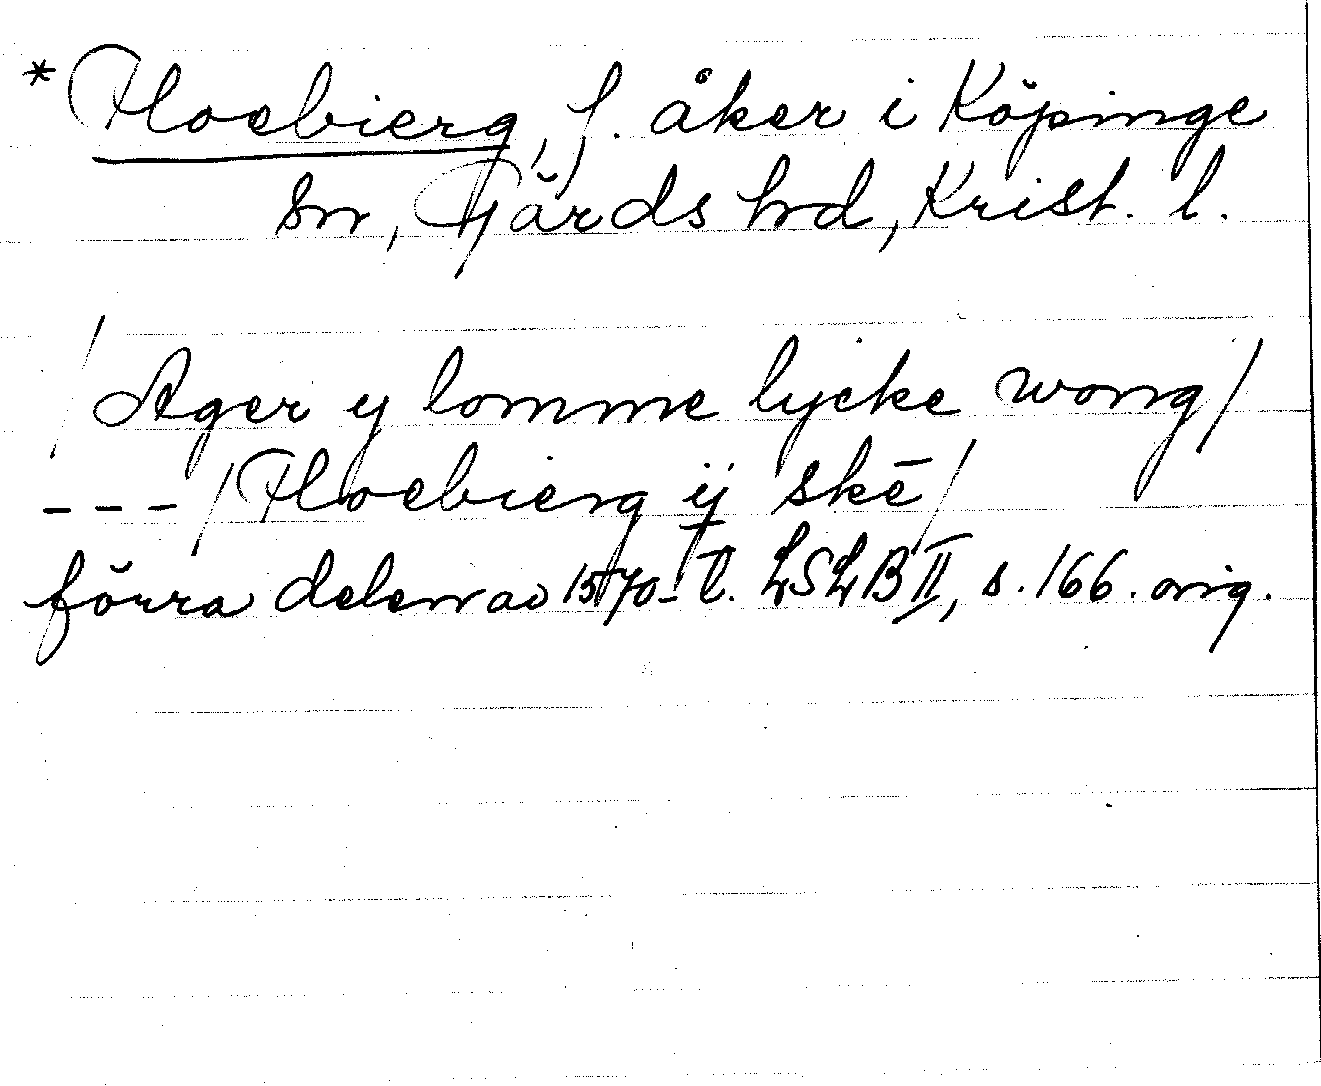 * Hoebierg, f. åker i Köpinge
sn, Gärds hrd, Krist. l.
/Ager y lomme lycke wong/
---/Hoebierg ÿ skē/
förra delen av 1570-t. LSLB II, s. 166. orig.